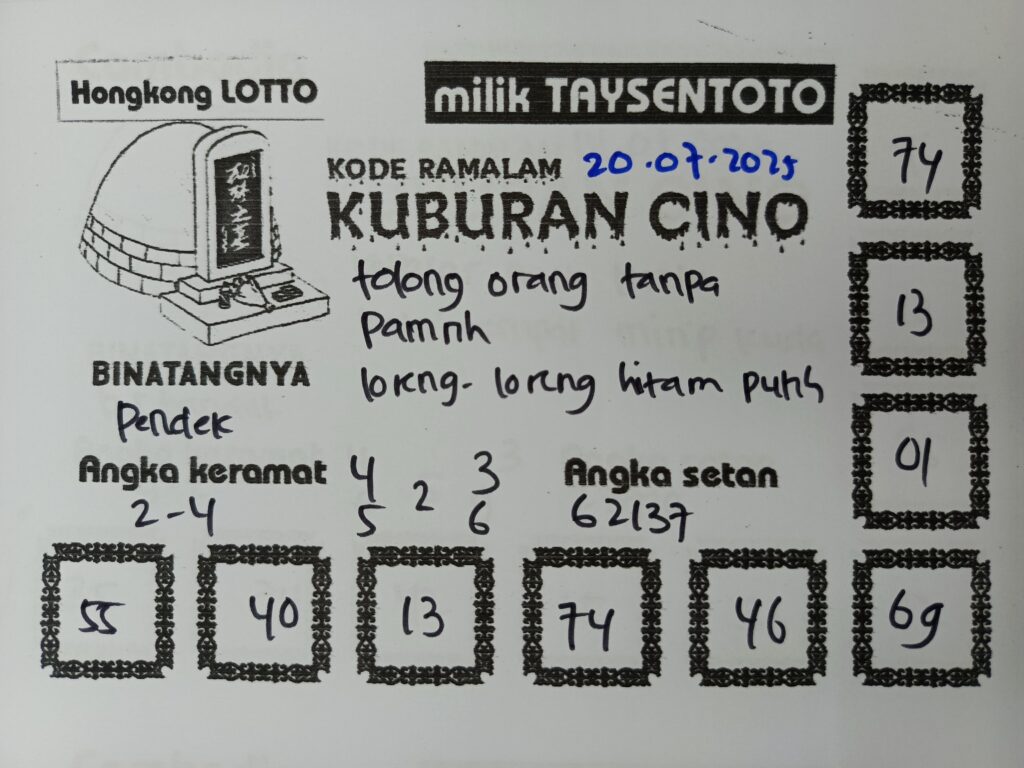 Hongkong LOTTO
milik TAYSENTOTO
KODE RAMALAM 20.07.2025
KUBURAN CINO
tolong orang tanpa
Pamrih
loreng- loreng hitam putih
BINATANGNYA
Pendek
Angka keramat
2-4
4 2 3
5 6
Angka setan
62137
74
13
01
55 40 13 74 46 69